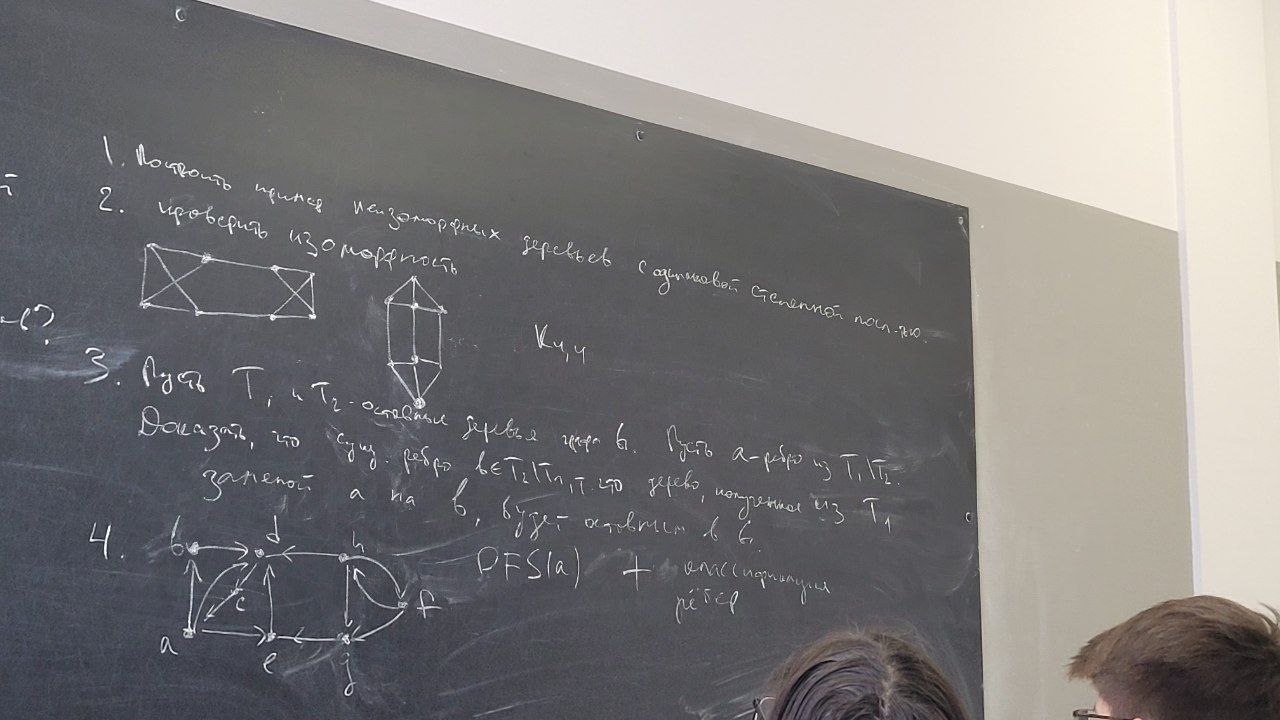 1. Построить пример неизоморфных деревьев с одинаковой степенной посл-тю.
2. проверить изоморфность
K4,4
3. Пусть T1 и T2 - остовные деревья графа G. Пусть a - ребро из T1\T2.
Доказать, что сущ. ребро b∈T2\T1, т.что дерево, полученное из T1
заменой a на b, будет остовным в G.
4.
b d h
c f
a e j
DFS(a) + классификация
рёбер